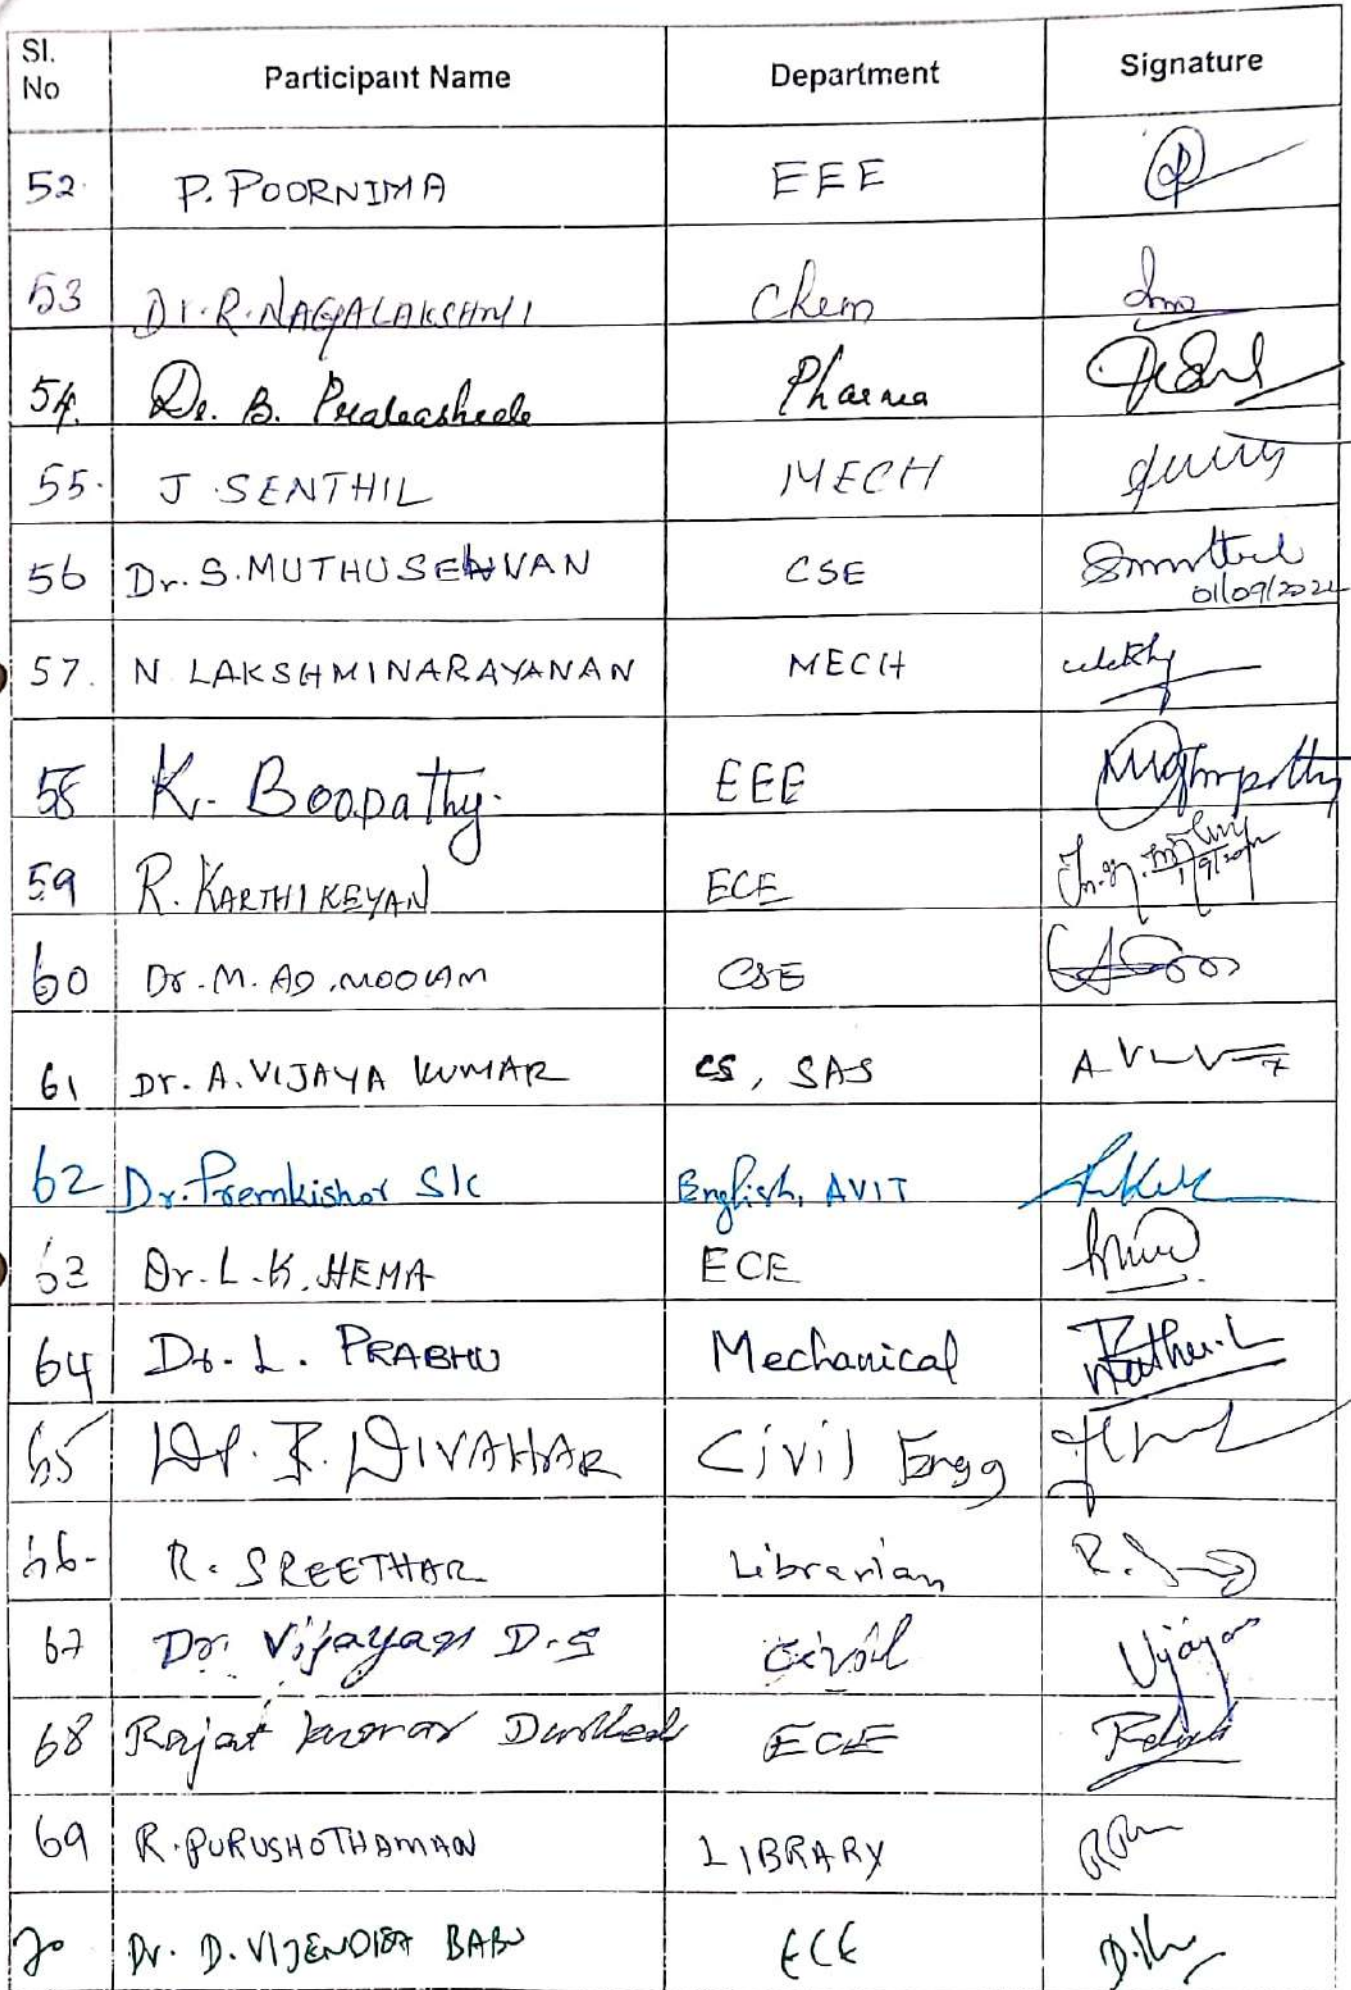 Sl. No Participant Name Department Signature
52. P. POORNIMA EEE
53 Dr. R. NAGALAKSHMI Chem
54. Dr. B. Pharma
55. J SENTHIL MECH
56 Dr. S. MUTHUSELVAN CSE
01/09/2022
57. N LAKSHMINARAYANAN MECH
58 K. Boopathy. EEE
59 R. KARTHIKEYAN ECE
60 Dr. M. CSE
61 Dr. A. VIJAYA KUMAR CS, SAS
62 Dr. Premkishor S K English, AVIT
63 Dr. L. K. HEMA ECE
64 Dr. L. PRABHU Mechanical Prabhu. L
65 Dr. R. DIVAHAR Civil Engg
66- R. SREETHAR Librarian R.
67 Dr. Vijayan D. S Civil Vijayan
68 Rajat Kumar ECE
69 R. PURUSHOTHAMAN LIBRARY
70 Dr. D. VIJENDRA BABU ECE